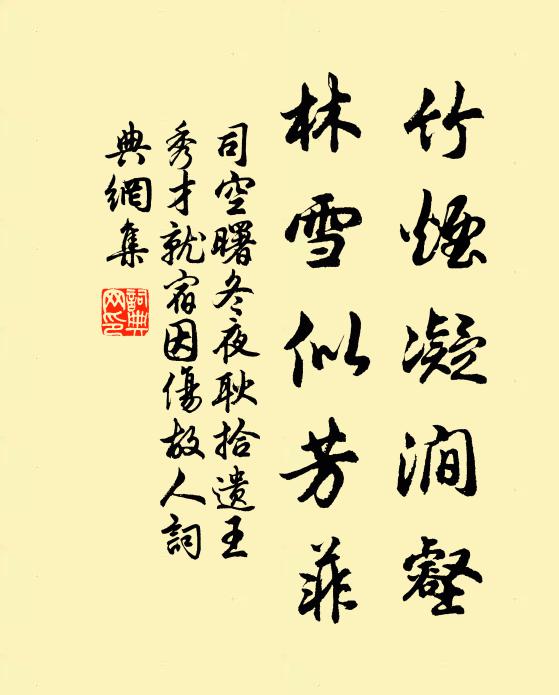 竹煙凝澗壑
林雪似芳菲
司空曙冬夜耿拾遺王
秀才就宿因傷故人詞
典網集
詞典
网印